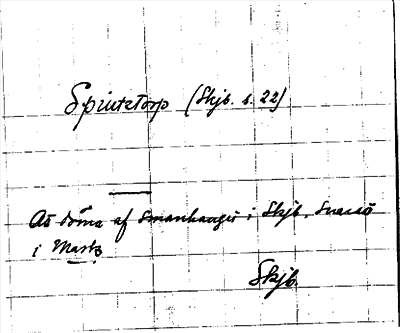 Spintstorp (Skjb. s. 22)
Att döma af Smanhange i Skjb. 
i Mark
Skjb.